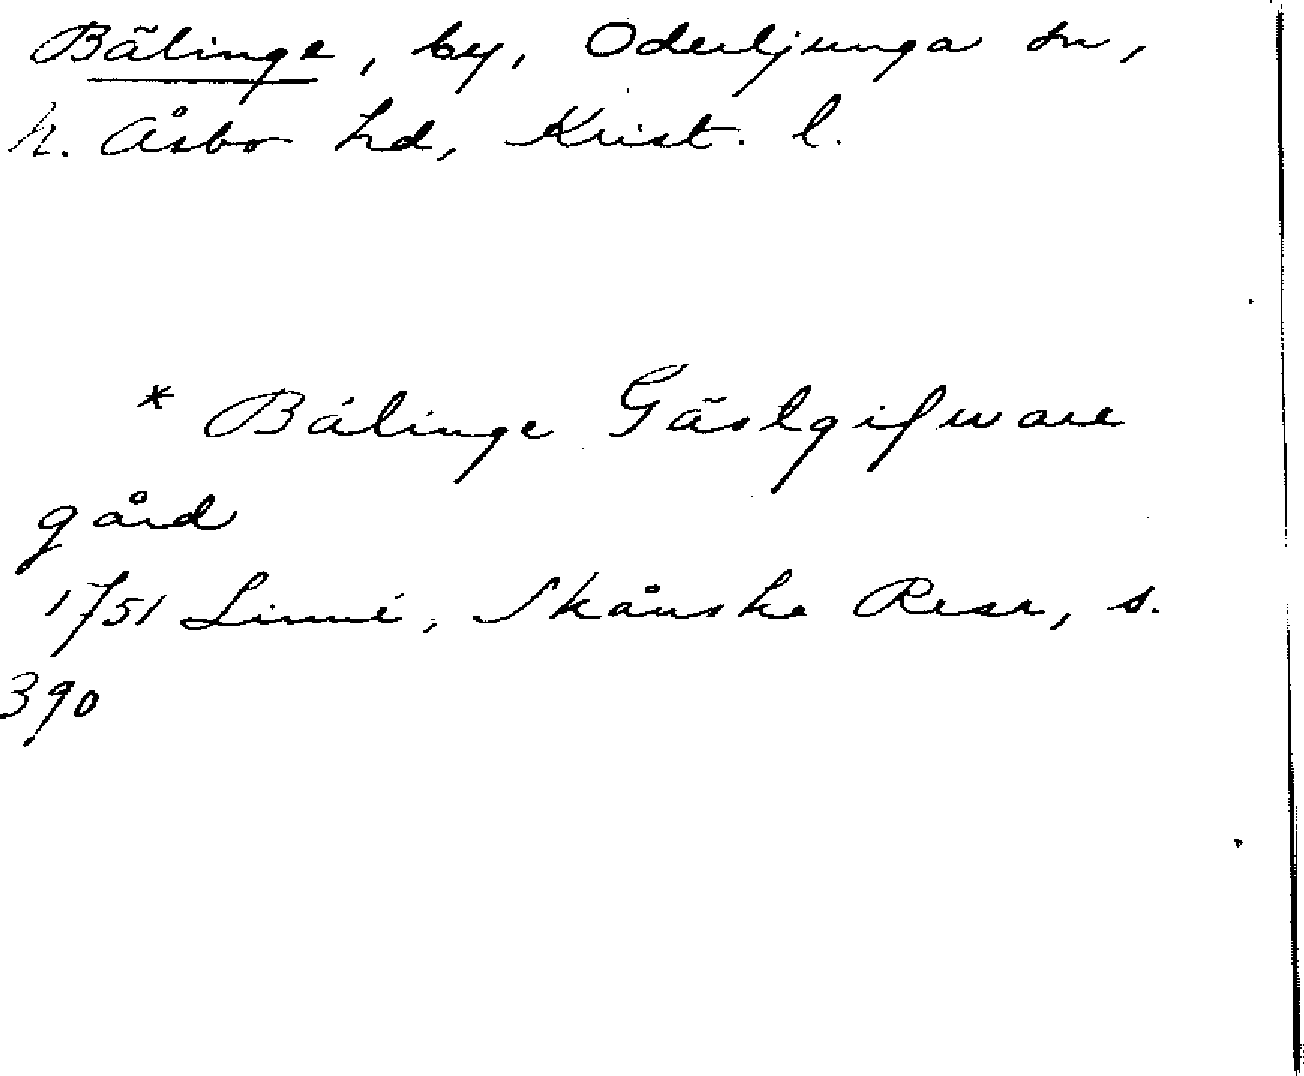 Bälinge, by, Oderljunga sn,
N. Åsbo hd, Krist. l.
* Bálinge Gästgifware
gård
1751 Linné, Skånska Resa, s.
390